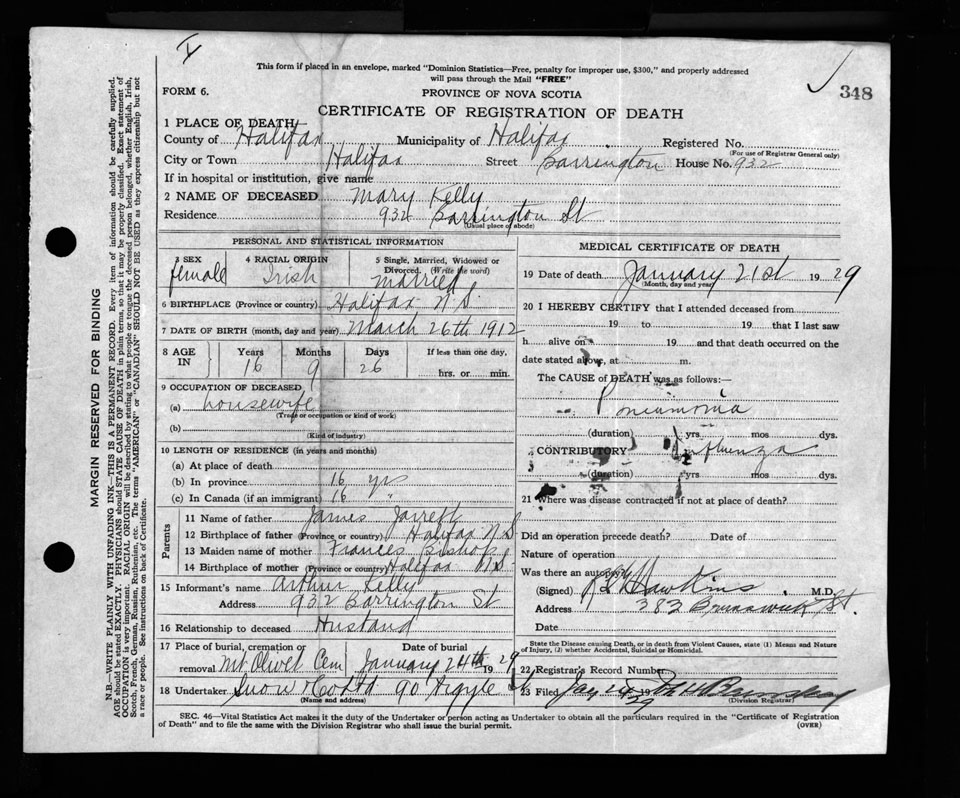 This form if placed in an envelope, marked "Dominion Statistics—Free, penalty for improper use, $300," and properly addressed
will pass through the Mail "FREE"
348
FORM 6.
PROVINCE OF NOVA SCOTIA
CERTIFICATE OF REGISTRATION OF DEATH
1 PLACE OF DEATH
County of Halifax Municipality of Halifax Registered No.
(For use of Registrar General only)
City or Town Halifax Street Barrington House No. 932
If in hospital or institution, give name
2 NAME OF DECEASED Mary Kelly
Residence 932 Barrington St
(Usual place of abode)
PERSONAL AND STATISTICAL INFORMATION
3 SEX 4 RACIAL ORIGIN 5 Single, Married, Widowed or
Divorced. (Write the word)
female Irish married
6 BIRTHPLACE (Province or country) Halifax N.S.
7 DATE OF BIRTH (month, day and year) March 26th 1912
8 AGE IN Years Months Days If less than one day,
16 9 26 hrs. or min.
9 OCCUPATION OF DECEASED
(a) housewife
(Trade or occupation or kind of work)
(b)
(Kind of industry)
10 LENGTH OF RESIDENCE (in years and months)
(a) At place of death
(b) In province 16 yrs
(c) In Canada (if an immigrant) 16 "
Parents
11 Name of father James Jarrett
12 Birthplace of father (Province or country) Halifax N S
13 Maiden name of mother Frances Bishop
14 Birthplace of mother (Province or country) Halifax N S
15 Informant's name Arthur Kelly
Address 932 Barrington St
16 Relationship to deceased Husband
17 Place of burial, cremation or removal Date of burial
Mt Olivet Cem January 24th 1929
18 Undertaker Snow & Co Ltd 90 Argyle St
(Name and address)
MEDICAL CERTIFICATE OF DEATH
19 Date of death January 21st 1929
(Month, day and year)
20 I HEREBY CERTIFY that I attended deceased from
19 to 19 that I last saw
h alive on 19 and that death occurred on the
date stated above, at m.
The CAUSE of DEATH was as follows:—
Pneumonia
(duration) yrs mos dys.
CONTRIBUTORY Influenza
(duration) yrs mos dys.
21 Where was disease contracted if not at place of death?
Did an operation precede death? Date of
Nature of operation
Was there an autopsy
(Signed) Hawkins M.D.
Address 382 Brunswick St.
Date
State the Disease causing Death, or in death from Violent Causes, state (1) Means and Nature
of Injury, (J) whether Accidental, Suicidal or Homicidal.
22 Registrar's Record Number
23 Filed Jay 24 29
(Division Registrar)
SEC. 46—Vital Statistics Act makes it the duty of the Undertaker or person acting as Undertaker to obtain all the particulars required in the "Certificate of Registration
of Death" and to file the same with the Division Registrar who shall issue the burial permit. (OVER)
MARGIN RESERVED FOR BINDING
N.B.—WRITE PLAINLY WITH UNFADING INK—THIS IS A PERMANENT RECORD. Every item of information should be carefully supplied.
AGE should be stated EXACTLY. PHYSICIANS should STATE CAUSE OF DEATH in plain terms, so that it may be properly classified. Exact statement of
OCCUPATION is very important. RACIAL ORIGIN will be described by stating to what people or tongue the deceased person belonged, whether English, Irish,
Scotch, French, German, Russian, Ruthenian, etc. The terms "AMERICAN" or "CANADIAN" SHOULD NOT BE USED as they express citizenship but not
a race or people. See instructions on back of Certificate.